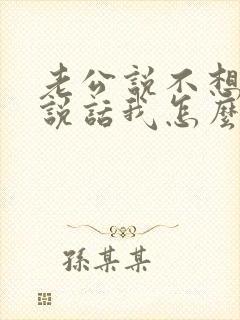 老公説不想
説話我怎麼
孫某某